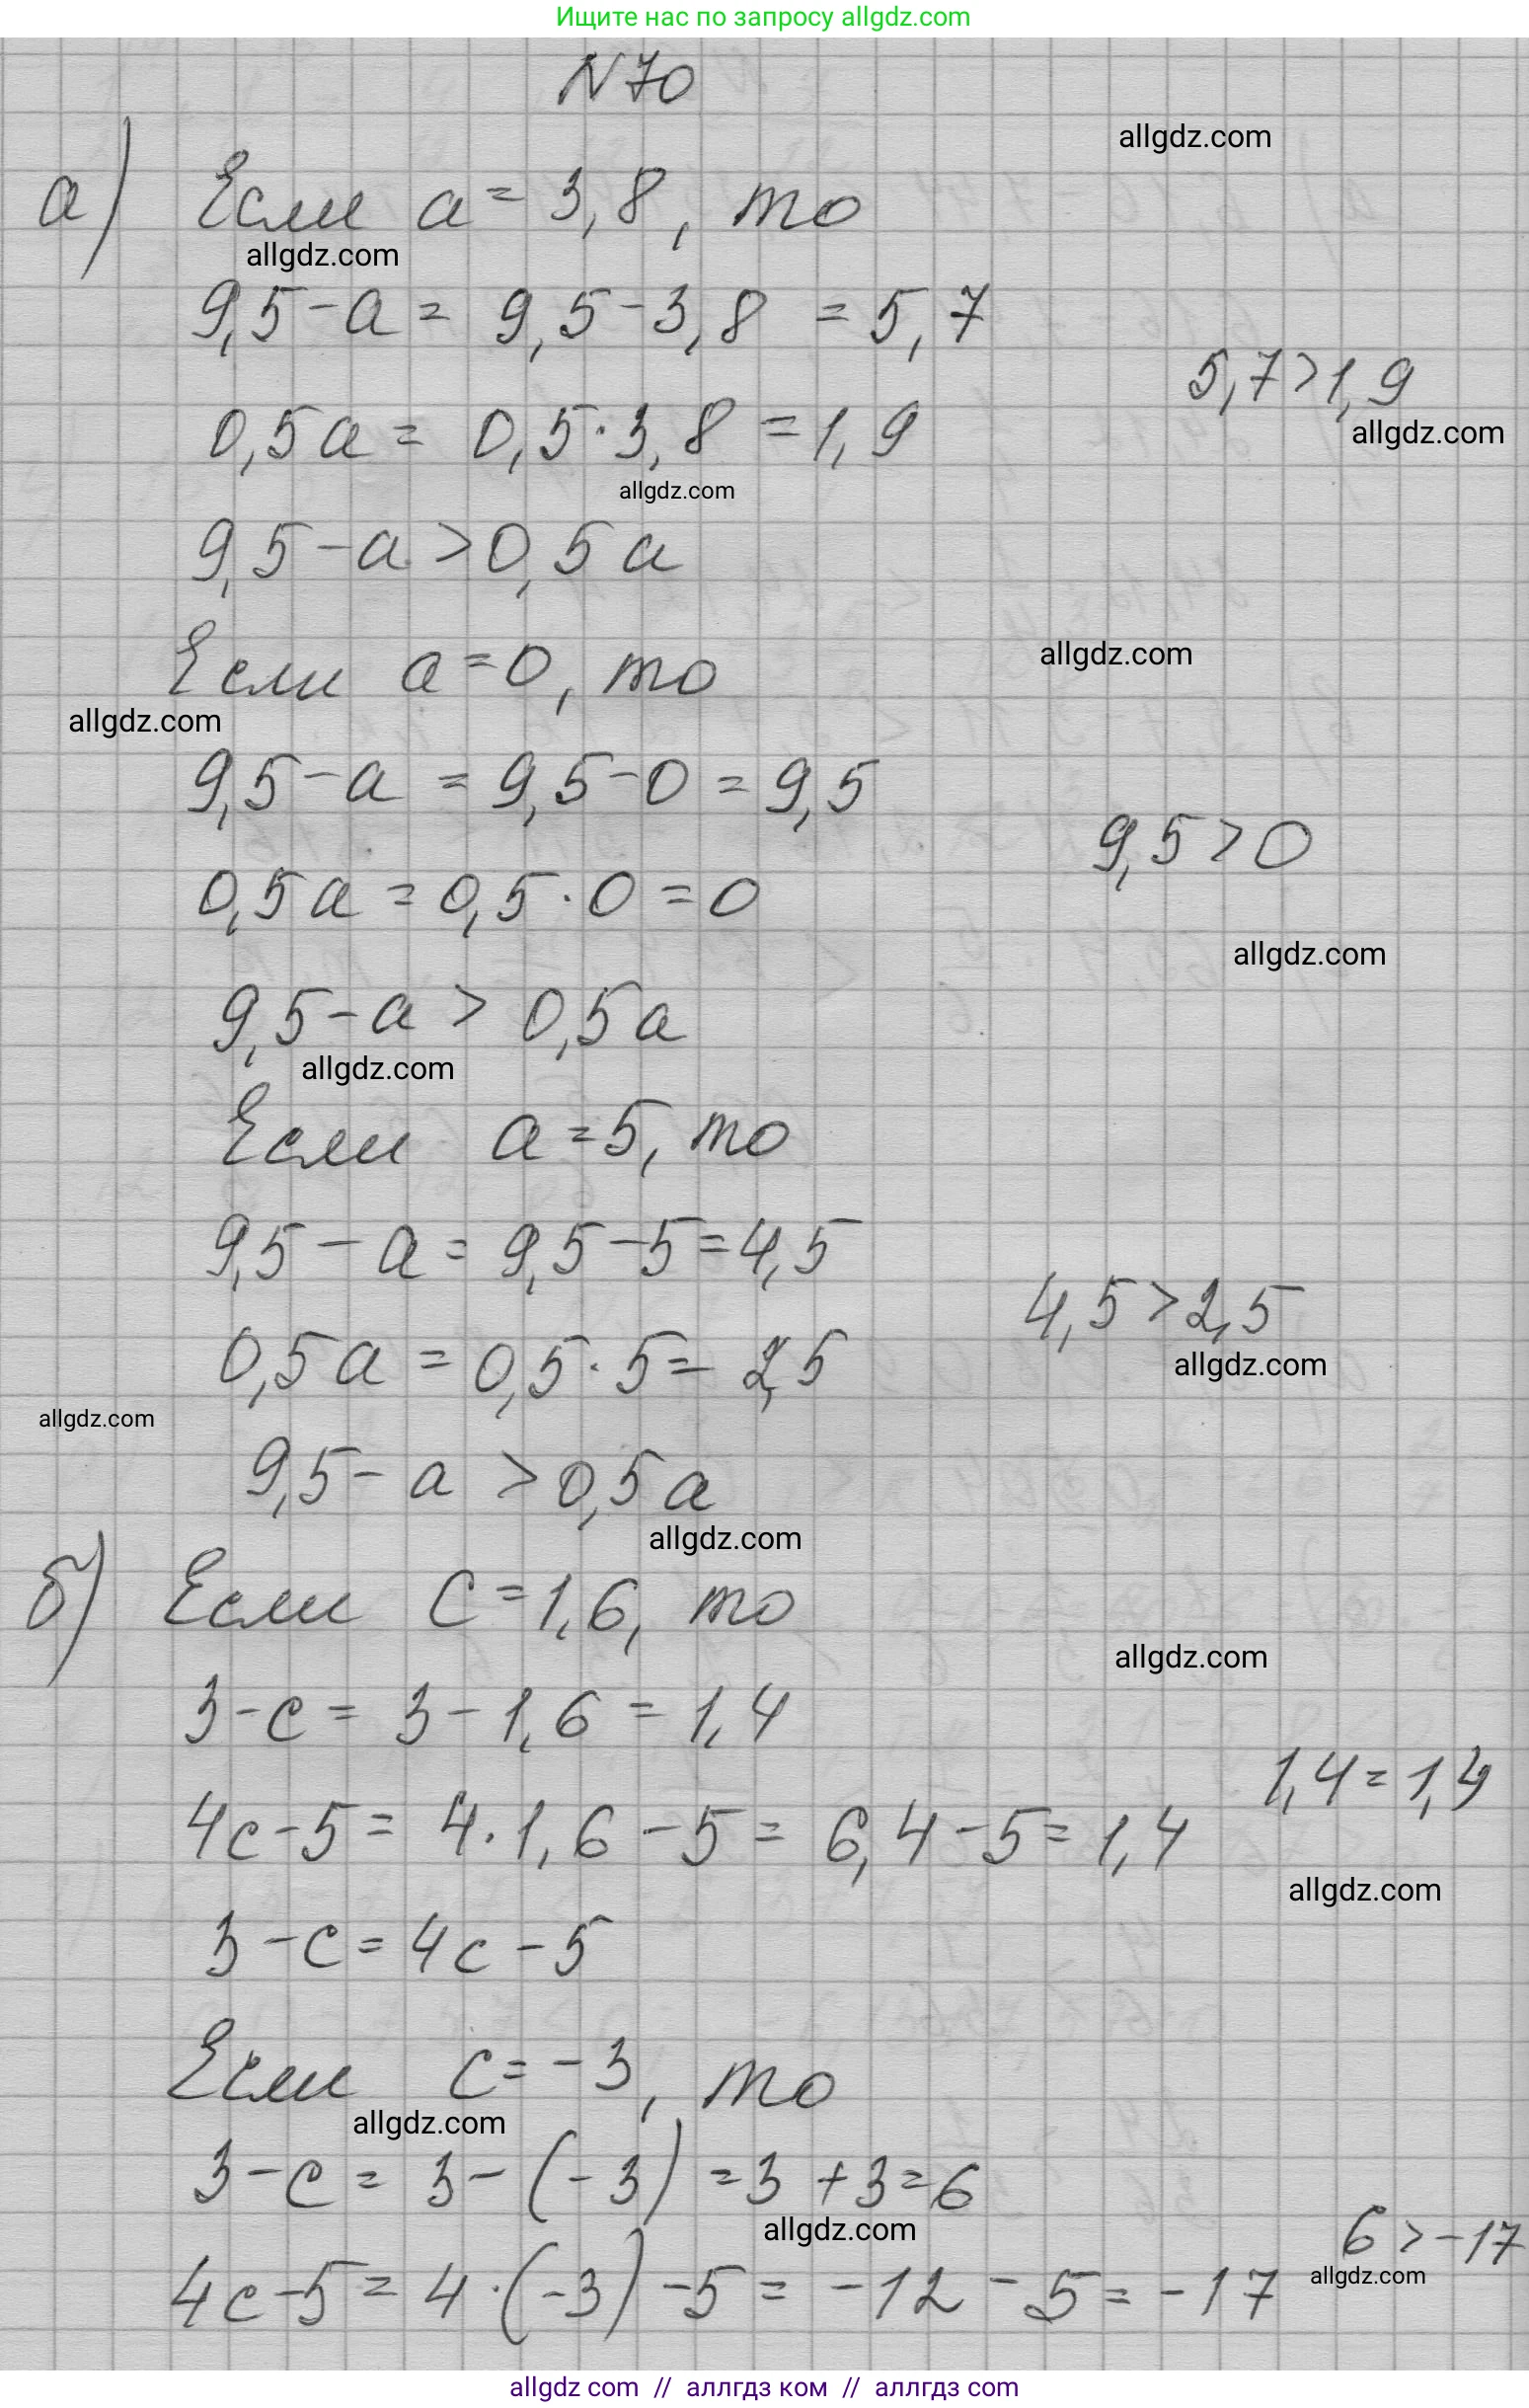 Ищите нас по запросу allgdz.com
N70
allgdz.com
а) Если a = 3,8, то
allgdz.com
9,5 - a = 9,5 - 3,8 = 5,7
5,7 > 1,9
0,5a = 0,5 · 3,8 = 1,9
allgdz.com
allgdz.com
9,5 - a > 0,5a
Если a = 0, то
allgdz.com
allgdz.com
9,5 - a = 9,5 - 0 = 9,5
9,5 > 0
0,5a = 0,5 · 0 = 0
allgdz.com
9,5 - a > 0,5a
allgdz.com
Если a = 5, то
9,5 - a = 9,5 - 5 = 4,5
4,5 > 2,5
0,5a = 0,5 · 5 = 2,5
allgdz.com
allgdz.com
9,5 - a > 0,5a
allgdz.com
б) Если c = 1,6, то
allgdz.com
3 - c = 3 - 1,6 = 1,4
1,4 = 1,4
4c - 5 = 4 · 1,6 - 5 = 6,4 - 5 = 1,4
allgdz.com
3 - c = 4c - 5
Если c = -3, то
allgdz.com
3 - c = 3 - (-3) = 3 + 3 = 6
allgdz.com
6 > -17
allgdz.com
4c - 5 = 4 · (-3) - 5 = -12 - 5 = -17
allgdz com // аллгдз ком // аллгдз com